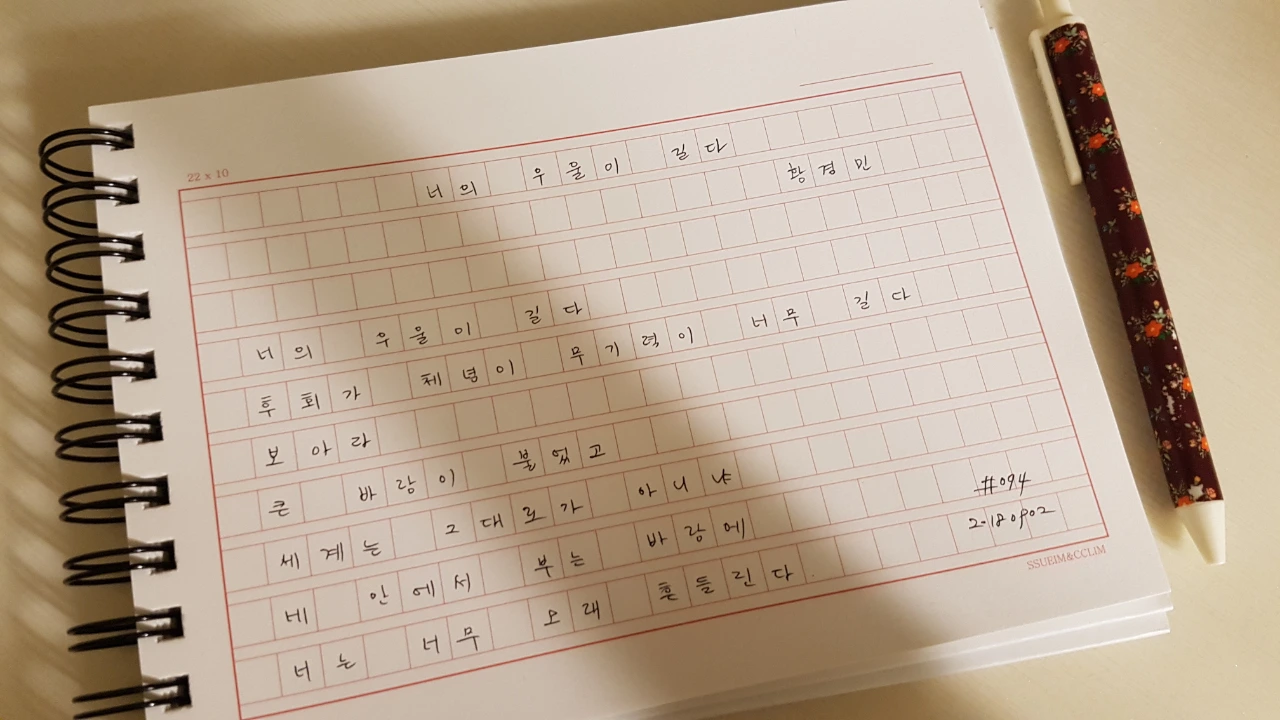 22 x 10
너의 우울이 길다
황경민
너의 우울이 길다
후회가 체념이 무기력이 너무 길다
보아라
큰 바람이 불었고
세계는 그대로가 아니냐
네 안에서 부는 바람에
너는 너무 오래 흔들린다
#094
2.180902
SSUEIM&CCLIM